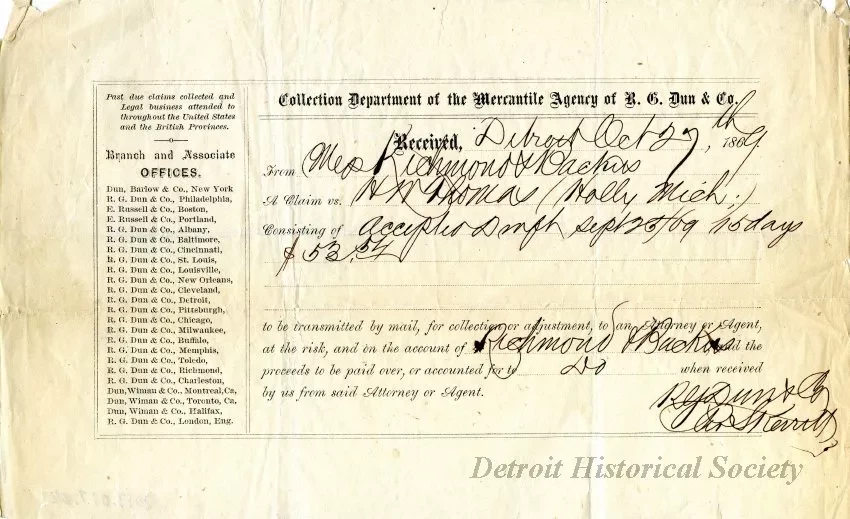 Past due claims collected and
Legal business attended to
throughout the United States
and the British Provinces.
Branch and Associate
OFFICES.
Dun, Barlow & Co., New York
R. G. Dun & Co., Philadelphia,
E. Russell & Co., Boston,
E. Russell & Co., Portland,
R. G. Dun & Co., Albany,
R. G. Dun & Co., Baltimore,
R. G. Dun & Co., Cincinnati,
R. G. Dun & Co., St. Louis,
R. G. Dun & Co., Louisville,
R. G. Dun & Co., New Orleans,
R. G. Dun & Co., Cleveland,
R. G. Dun & Co., Detroit,
R. G. Dun & Co., Pittsburgh,
R. G. Dun & Co., Chicago,
R. G. Dun & Co., Milwaukee,
R. G. Dun & Co., Buffalo,
R. G. Dun & Co., Memphis,
R. G. Dun & Co., Toledo,
R. G. Dun & Co., Richmond,
R. G. Dun & Co., Charleston,
Dun, Wiman & Co., Montreal, Ca,
Dun, Wiman & Co., Toronto, Ca.
Dun, Wiman & Co., Halifax,
R. G. Dun & Co., London, Eng.
Collection Department of the Mercantile Agency of R. G. Dun & Co.
Received, Detroit Oct 27th, 1869
From Mes Richmond & Backus
A Claim vs. H W Thomas (Holly Mich.)
Consisting of Accepted Draft Sept 25/69 15 days
$53.54
to be transmitted by mail, for collection or adjustment, to an Attorney or Agent,
at the risk, and on the account of Richmond & Backus and the
proceeds to be paid over, or accounted for to Do when received
by us from said Attorney or Agent.
R G Dun & Co
Detroit Historical Society